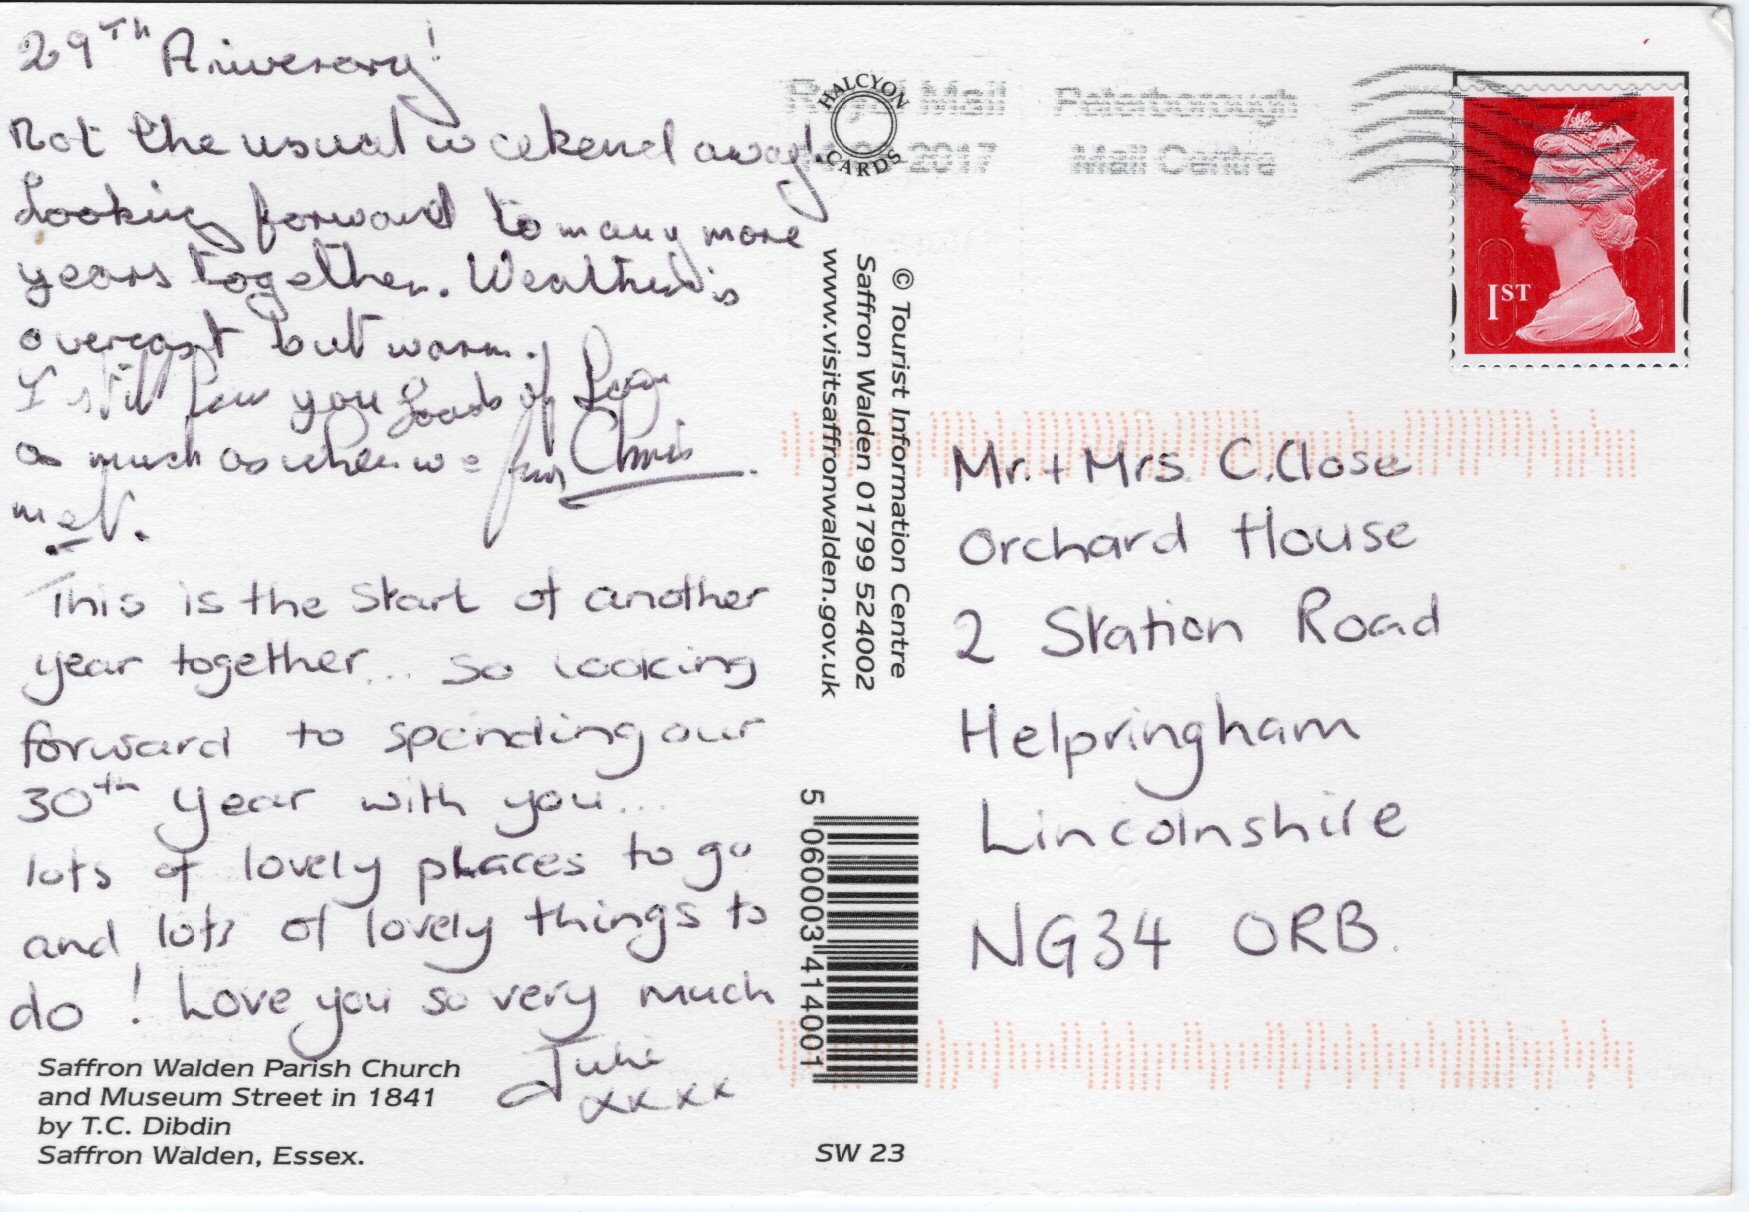 29TH Aniversary!
Not the usual weekend away!
Looking forward to many more
years together. Weather is
overcast but warm.
I still love you Loads of Love
as much as when we from Chris
met.
This is the start of another
year together... so looking
forward to spending our
30th year with you...
lots of lovely places to go
and lots of lovely things to
do! Love you so very much
Julie
xxxx
Saffron Walden Parish Church
and Museum Street in 1841
by T.C. Dibdin
Saffron Walden, Essex.
HALCYON
CARDS
© Tourist Information Centre
Saffron Walden 01799 524002
www.visitsaffronwalden.gov.uk
5 060003 414001
SW 23
Royal Mail Peterborough
2017 Mail Centre
1ST
Mr. + Mrs. C. Close
Orchard House
2 Station Road
Helpringham
Lincolnshire
NG34 ORB.